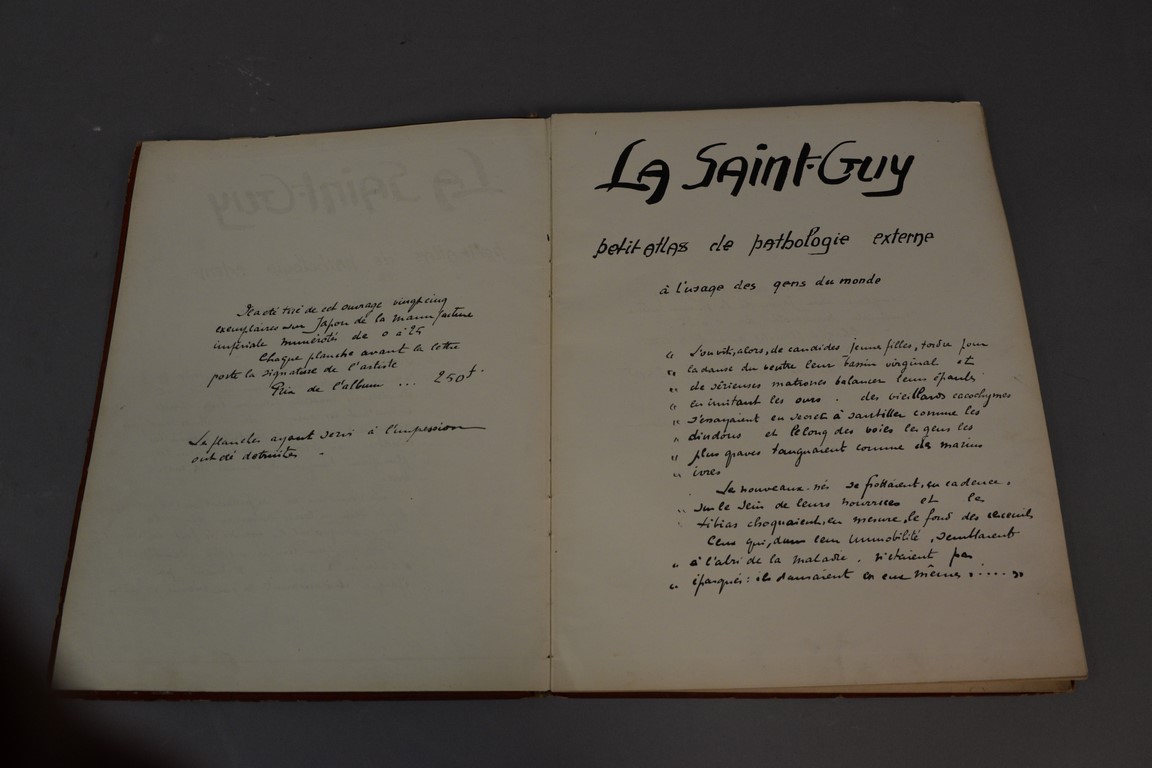 Il a été tiré de cet ouvrage vingt cinq
exemplaires sur Japon de la manufacture
impériale numérotés de 0 à 25
Chaque planche avant la lettre
porte la signature de l'artiste
Prix de l'album ... 250f.
Le planches ayant servi à l'impression
ont dé detruites .
La Saint-Guy
petit atlas de pathologie externe
à l'usage des gens du monde
" L'on vit, alors, de candides jeune filles, tordre pour
" la danse du ventre leur bassin virginal et
" de sérieuses matrones balancer leurs épaules
" en imitant les ours . des vieillards cacochymes
" s'essayaient en secret à sautiller comme les
" dindons et le long des voies les gens les
" plus graves tanguaient comme des marins
" ivres
Les nouveaux-nés se frottèrent, en cadence,
" sur le sein de leurs nourrices et les
" tibias choquaient, en mesure, le fond des cercueils
Ceux qui, dans leur immobilité, semblaient
" à l'abri de la maladie, n'étaient pas
" épargnés : ils dansaient en eux mêmes ..... "